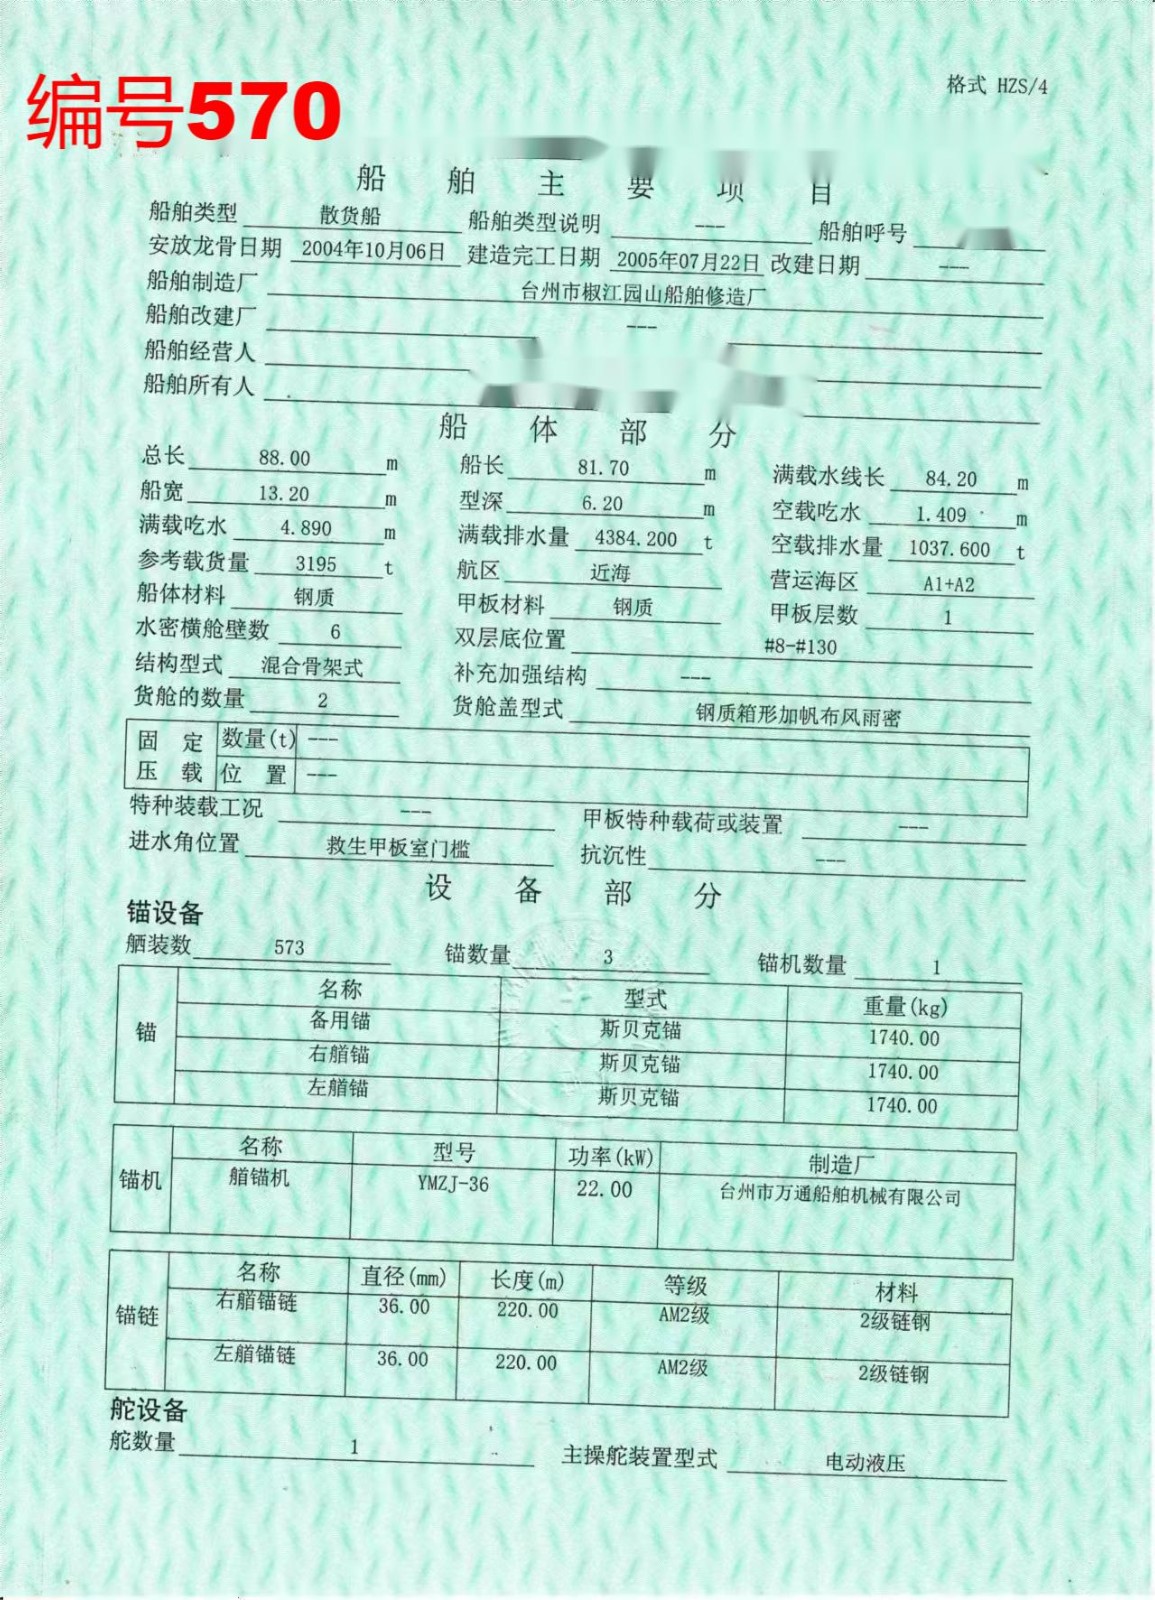 格式 HZS/4
编号570
船舶主要项目
船舶类型 散货船 船舶类型说明 --- 船舶呼号
安放龙骨日期 2004年10月06日 建造完工日期 2005年07月22日 改建日期 ---
船舶制造厂 台州市椒江园山船舶修造厂
船舶改建厂 ---
船舶经营人
船舶所有人
船体部分
总长 88.00 m 船长 81.70 m 满载水线长 84.20 m
船宽 13.20 m 型深 6.20 m 空载吃水 1.409 m
满载吃水 4.890 m 满载排水量 4384.200 t 空载排水量 1037.600 t
参考载货量 3195 t 航区 近海 营运海区 A1+A2
船体材料 钢质 甲板材料 钢质 甲板层数 1
水密横舱壁数 6 双层底位置 #8-#130
结构型式 混合骨架式 补充加强结构 ---
货舱的数量 2 货舱盖型式 钢质箱形加帆布风雨密
固定压载 数量(t) ---
位置 ---
特种装载工况 --- 甲板特种载荷或装置 ---
进水角位置 救生甲板室门槛 抗沉性 ---
设备部分
锚设备
舾装数 573 锚数量 3 锚机数量 1
锚 名称 型式 重量(kg)
备用锚 斯贝克锚 1740.00
右艏锚 斯贝克锚 1740.00
左艏锚 斯贝克锚 1740.00
锚机 名称 型号 功率(kW) 制造厂
艏锚机 YMZJ-36 22.00 台州市万通船舶机械有限公司
锚链 名称 直径(mm) 长度(m) 等级 材料
右艏锚链 36.00 220.00 AM2级 2级链钢
左艏锚链 36.00 220.00 AM2级 2级链钢
舵设备
舵数量 1 主操舵装置型式 电动液压